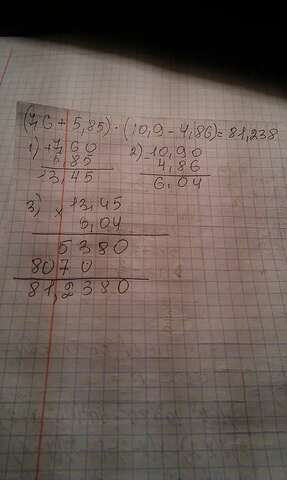 (7,6 + 5,85) · (10,9 - 4,86) = 81,238
1) + 7,60
5,85
13,45
2) - 10,90
4,86
6,04
3) × 13,45
6,04
5380
8070
81,2380